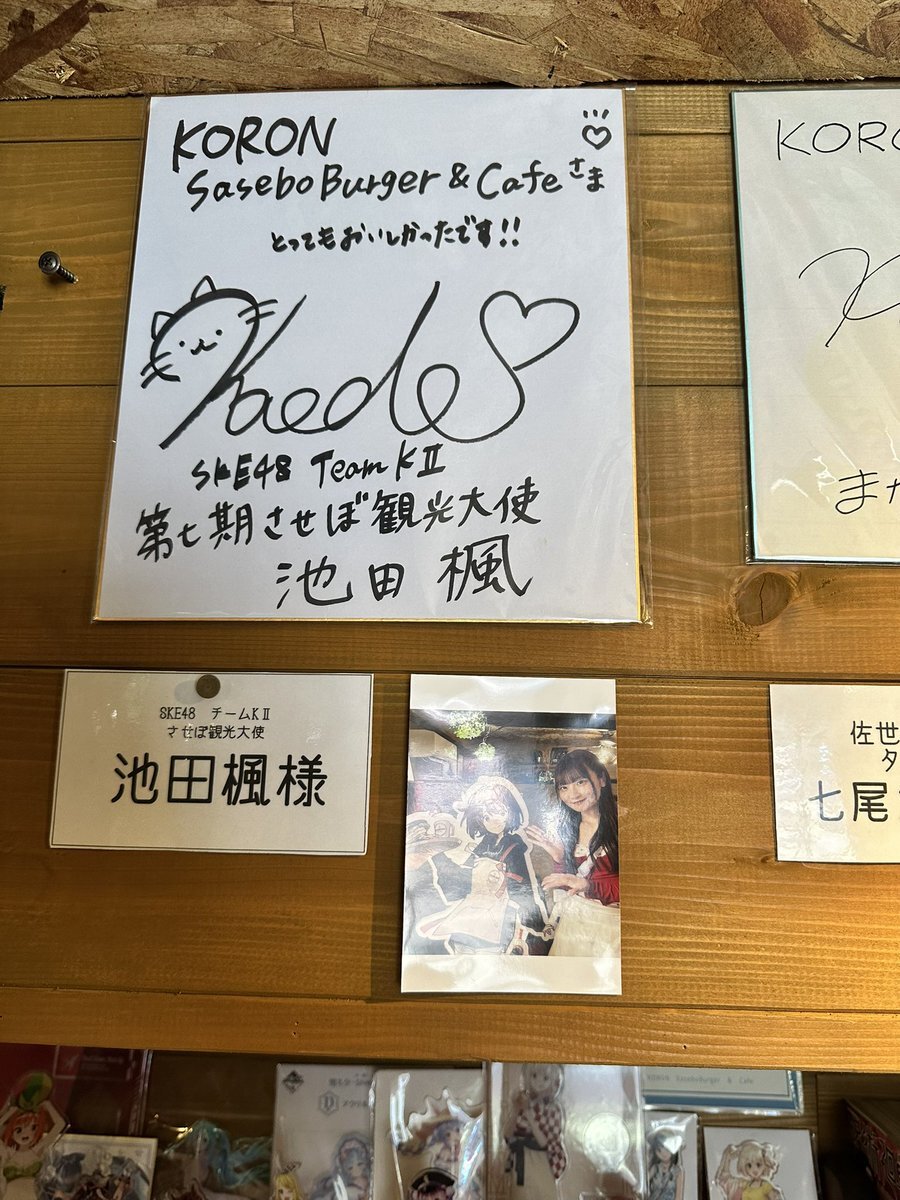 KORON
Sasebo Burger & Cafe さま
とってもおいしかったです!!
Kaede
SKE48 Team KⅡ
第七期させぼ観光大使
池田 楓
KORO
ま
SKE48 チームKⅡ
させぼ観光大使
池田楓様
佐世
タ
七尾
KORON SaseboBurger & Cafe